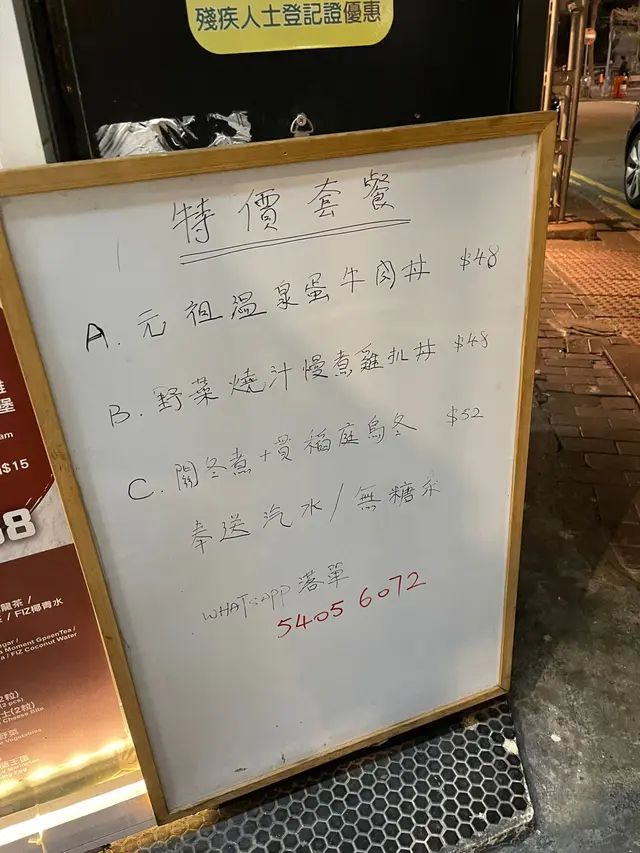 殘疾人士登記證優惠
特價套餐
A. 元祖温泉蛋牛肉丼 $48
B. 野菜燒汁慢煮雞扒丼 $48
C. 關冬煮+貫稻庭烏冬 $52
奉送汽水/無糖茶
WHATSAPP 落單
5405 6072
堡
am
$15
8
龍茶 /
/ FIZ椰青水
a Moment GpeenTea /
a / FIZ Coconut Water
(2 pcs)
士(2粒)
Cheese Bites
野菜
Vegetables